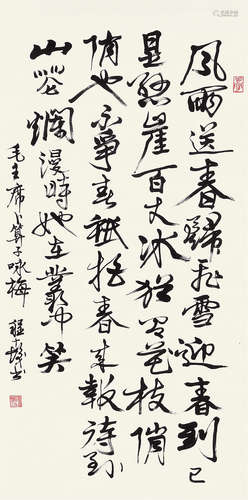 風雨送春歸飛雪迎春到已
是懸崖百丈冰猶有花枝俏
俏也不爭春祇把春來報待到
山花爛漫時她在叢中笑
毛主席卜算子詠梅